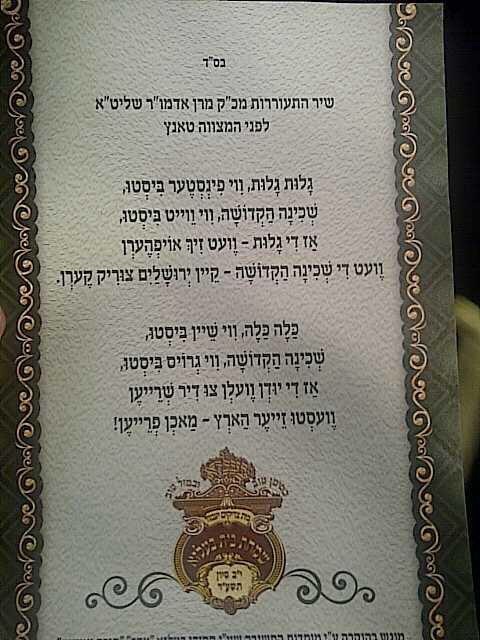 בס"ד
שיר התעוררות מכ"ק מרן אדמו"ר שליט"א
לפני המצווה טאנץ
גָלוּת גָלוּת, ווִי פִינְסְטֶער בִּיסְטוּ,
שְׁכִינָה הַקְדוֹשָׁה, ווִי ווַייט בִּיסְטוּ,
אַז דִי גָלוּת – ווֶעט זִיךְ אוֹיפְהֶערְן
ווֶעט דִי שְׁכִינָה הַקְדוֹשָׁה – קֵיין יְרוּשָׁלַיִם צוּרִיק קֶערְן.
כַּלָה כַּלָה, ווִי שֵׁיין בִּיסְטוּ,
שְׁכִינָה הַקְדוֹשָׁה, ווִי גְרוֹיס בִּיסְטוּ,
אַז דִי יוּדְן ווֶעלְן צוּ דִיר שְׁרֵייעֶן
ווֶעסְטוּ זֵייעֶר הַארְץ – מַאכְן פְרֵייעֶן!
בסימן טוב ובמזל טוב
שמחת בית בעלזא
י"ב סיון
תשע"ד